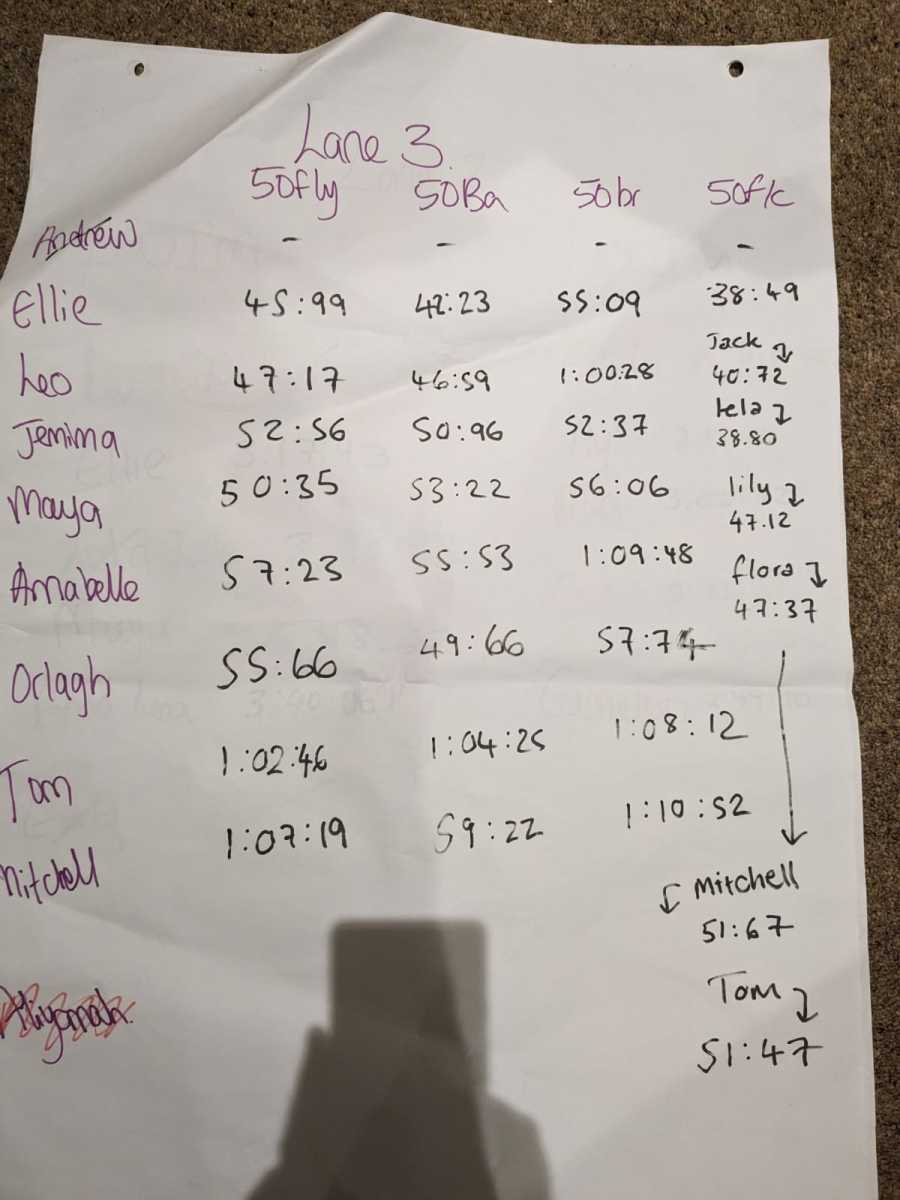 Lane 3.
50fly 50Ba 50br 50f/c
Andrew - - - -
Ellie 45:99 42:23 55:09 38:49
Jack
Leo 47:17 46:59 1:00:28 40:72
lela
Jemima 52:56 50:96 52:37 38.80
Maya 50:35 53:22 56:06 lily
47.12
Annabelle 57:23 55:53 1:09:48 flora
47:37
Orlagh 55:66 49:66 57:74
Tom 1:02:46 1:04:25 1:08:12
Mitchell 1:07:19 59:22 1:10:52
Mitchell
51:67
Tom
51:47